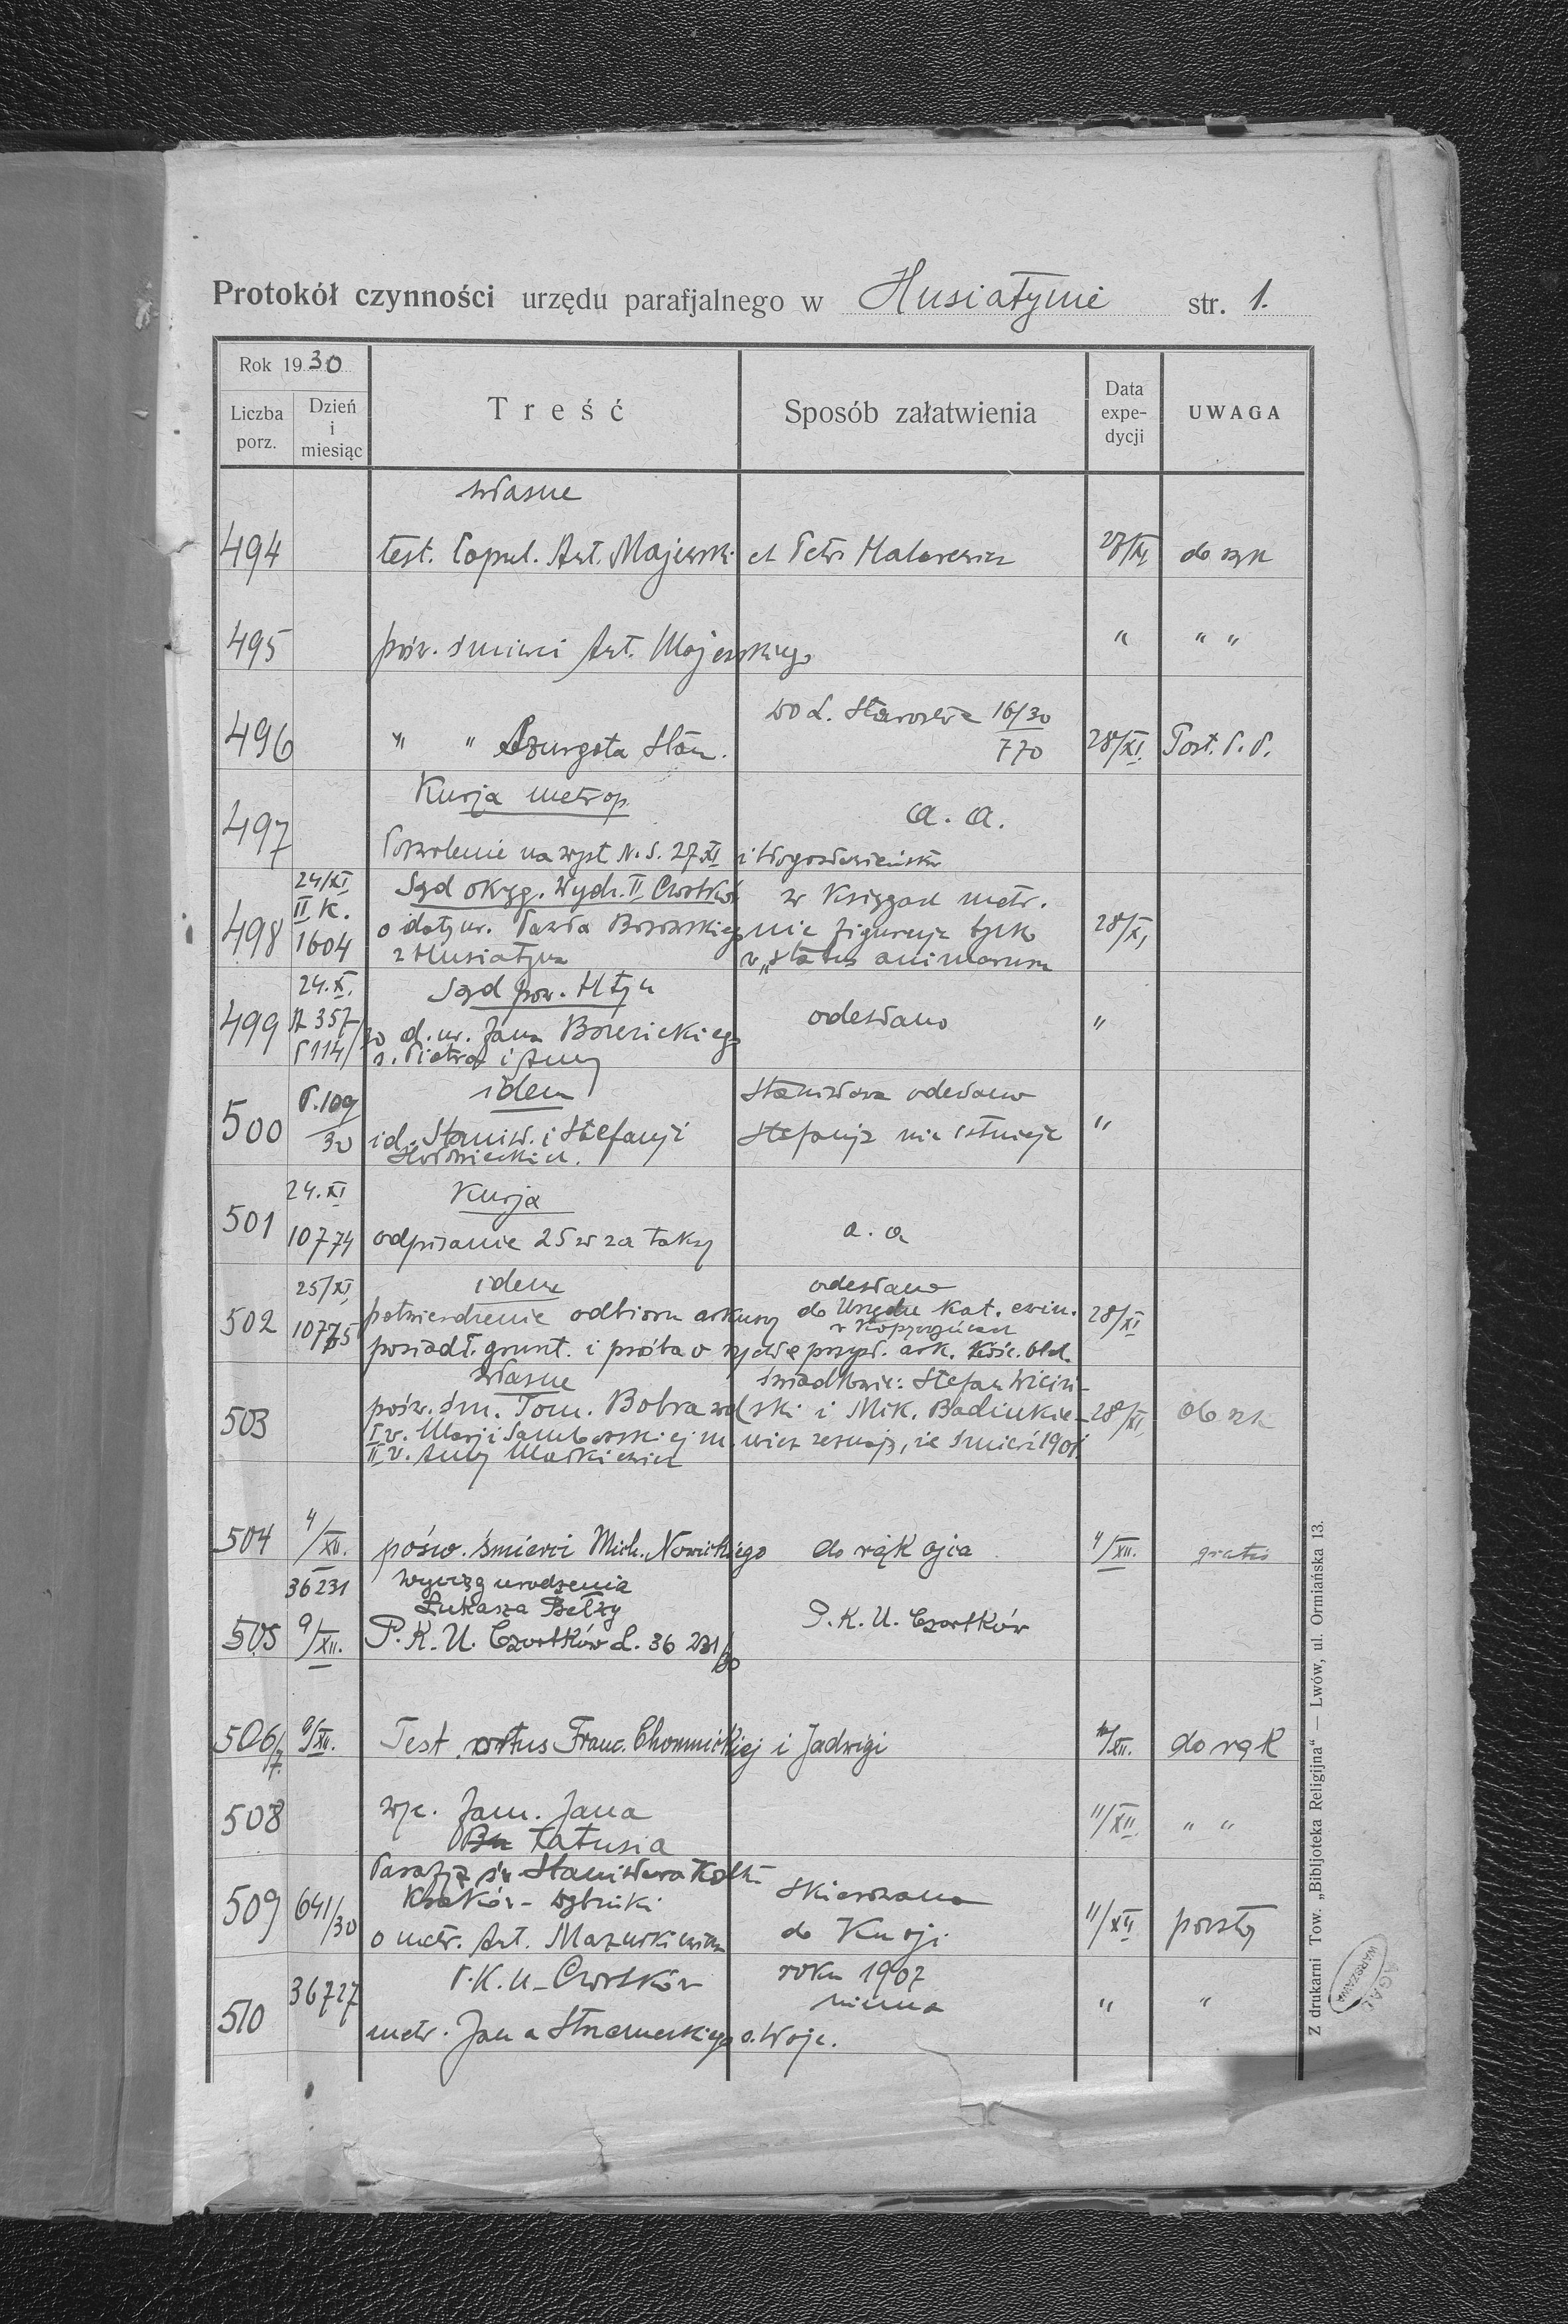 Protokół czynności urzędu parafjalnego w Husiatynie str. 1.
Rok 1930
Liczba porz.
Dzień i miesiąc
Treść
Sposób załatwienia
Data expe-
dycji
UWAGA
własne
494 test. Copul. Ant. Majewski et Petr. 28/XI do rąk
495 pośw. śmierci Ant. Majewskiego " " "
496 " " Stan. do L. Starostwa 16/30 770 28/XI. Post. P. P.
Kurja metrop.
497 a. a.
Pozwolenie na wyst. N. S. 27.XI i błogosławieństw
24/XI Sąd okręg. Wydz. II Czortków w Księgach metr.
498 II K. 1604 o datę ur. Pawła Borowskiego nie figuruje tylko 28/XI
z Husiatyna w „Status animarum
24.XI. Sąd pow. Htyn
499 A 357 P 114/30 d. ur. Jana odesłano "
s. Piotra i Anny
500 P. 109/30 idem Stanisława odesłano
id. Stanisł. i Stefanji Stefanja nie istnieje "
24.XI Kurja
501 10774 odpisanie 25 za taksy a. a
25/XI idem odesłano
502 10775 potwierdzenie odbioru arkuszy do Urzędu Kat. ewid. 28/XI
w Kopyczyńcach
posiadł. grunt. i prośba o przysł. ark.
własne świadkowie: Stefan
503 pośw. śm. Tom. Bobrowolski i Mik. 28/XI
I v. Marji Samborskiej wicz zeznają, że śmierć 1901.
II v. Anny
504 4/XII. pośw. śmierci Mich. Nowickiego do rąk ojca 4/XII. gratis
36231 wyciąg urodzenia
Łukasza Bełzy
505 9/XII. P. K. U. Czortków L. 36 231/30 P. K. U. Czortków
506/7. 9/XII. Test. ortus Franc. Chomnickiej i Jadwigi /XII. do rąk
508 wyc. fam. Jana 11/XII. " "
Łatusia
Parafja św. Stanisława Kostki
509 641/30 Kraków - Dębniki skierowano
o metr. Ant. Mazurkiewicza do Kurji 11/XII pocztą
36727 P. K. U. Czortków roku 1907
510 niema " "
metr. Jana s. Wojc.
Z drukarni Tow. „Bibljoteka Religijna“ — Lwów, ul. Ormiańska 13.
AGAD
WARSZAWA